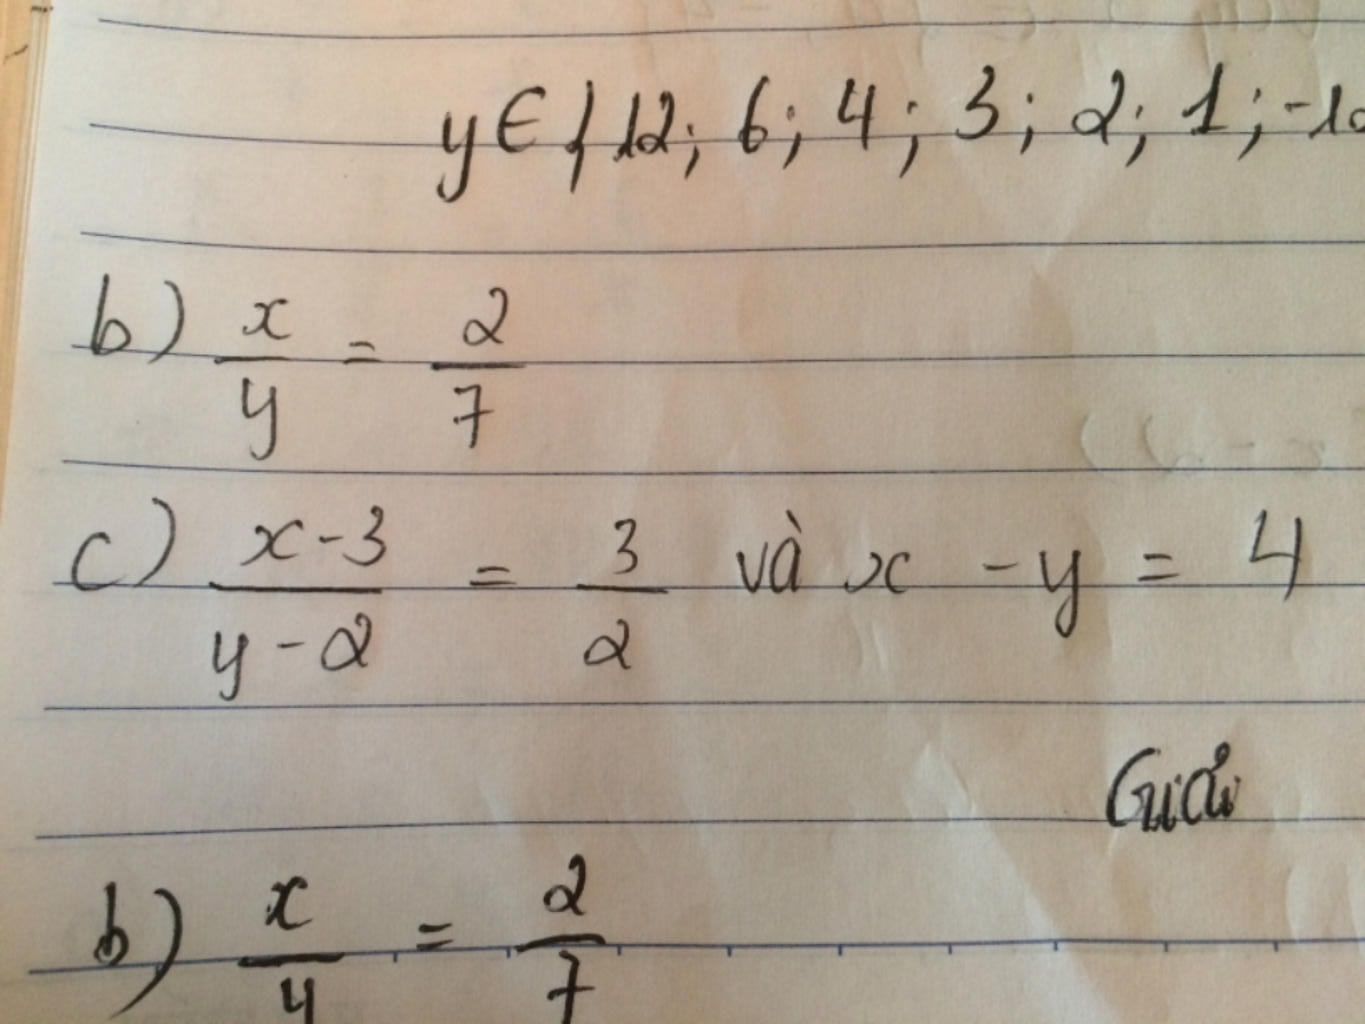 y ∈ { 12; 6; 4; 3; 2; 1; -12
b) x/y = 2/7
c) x-3/y-2 = 3/2 và x - y = 4
Giải
b) x/y = 2/7